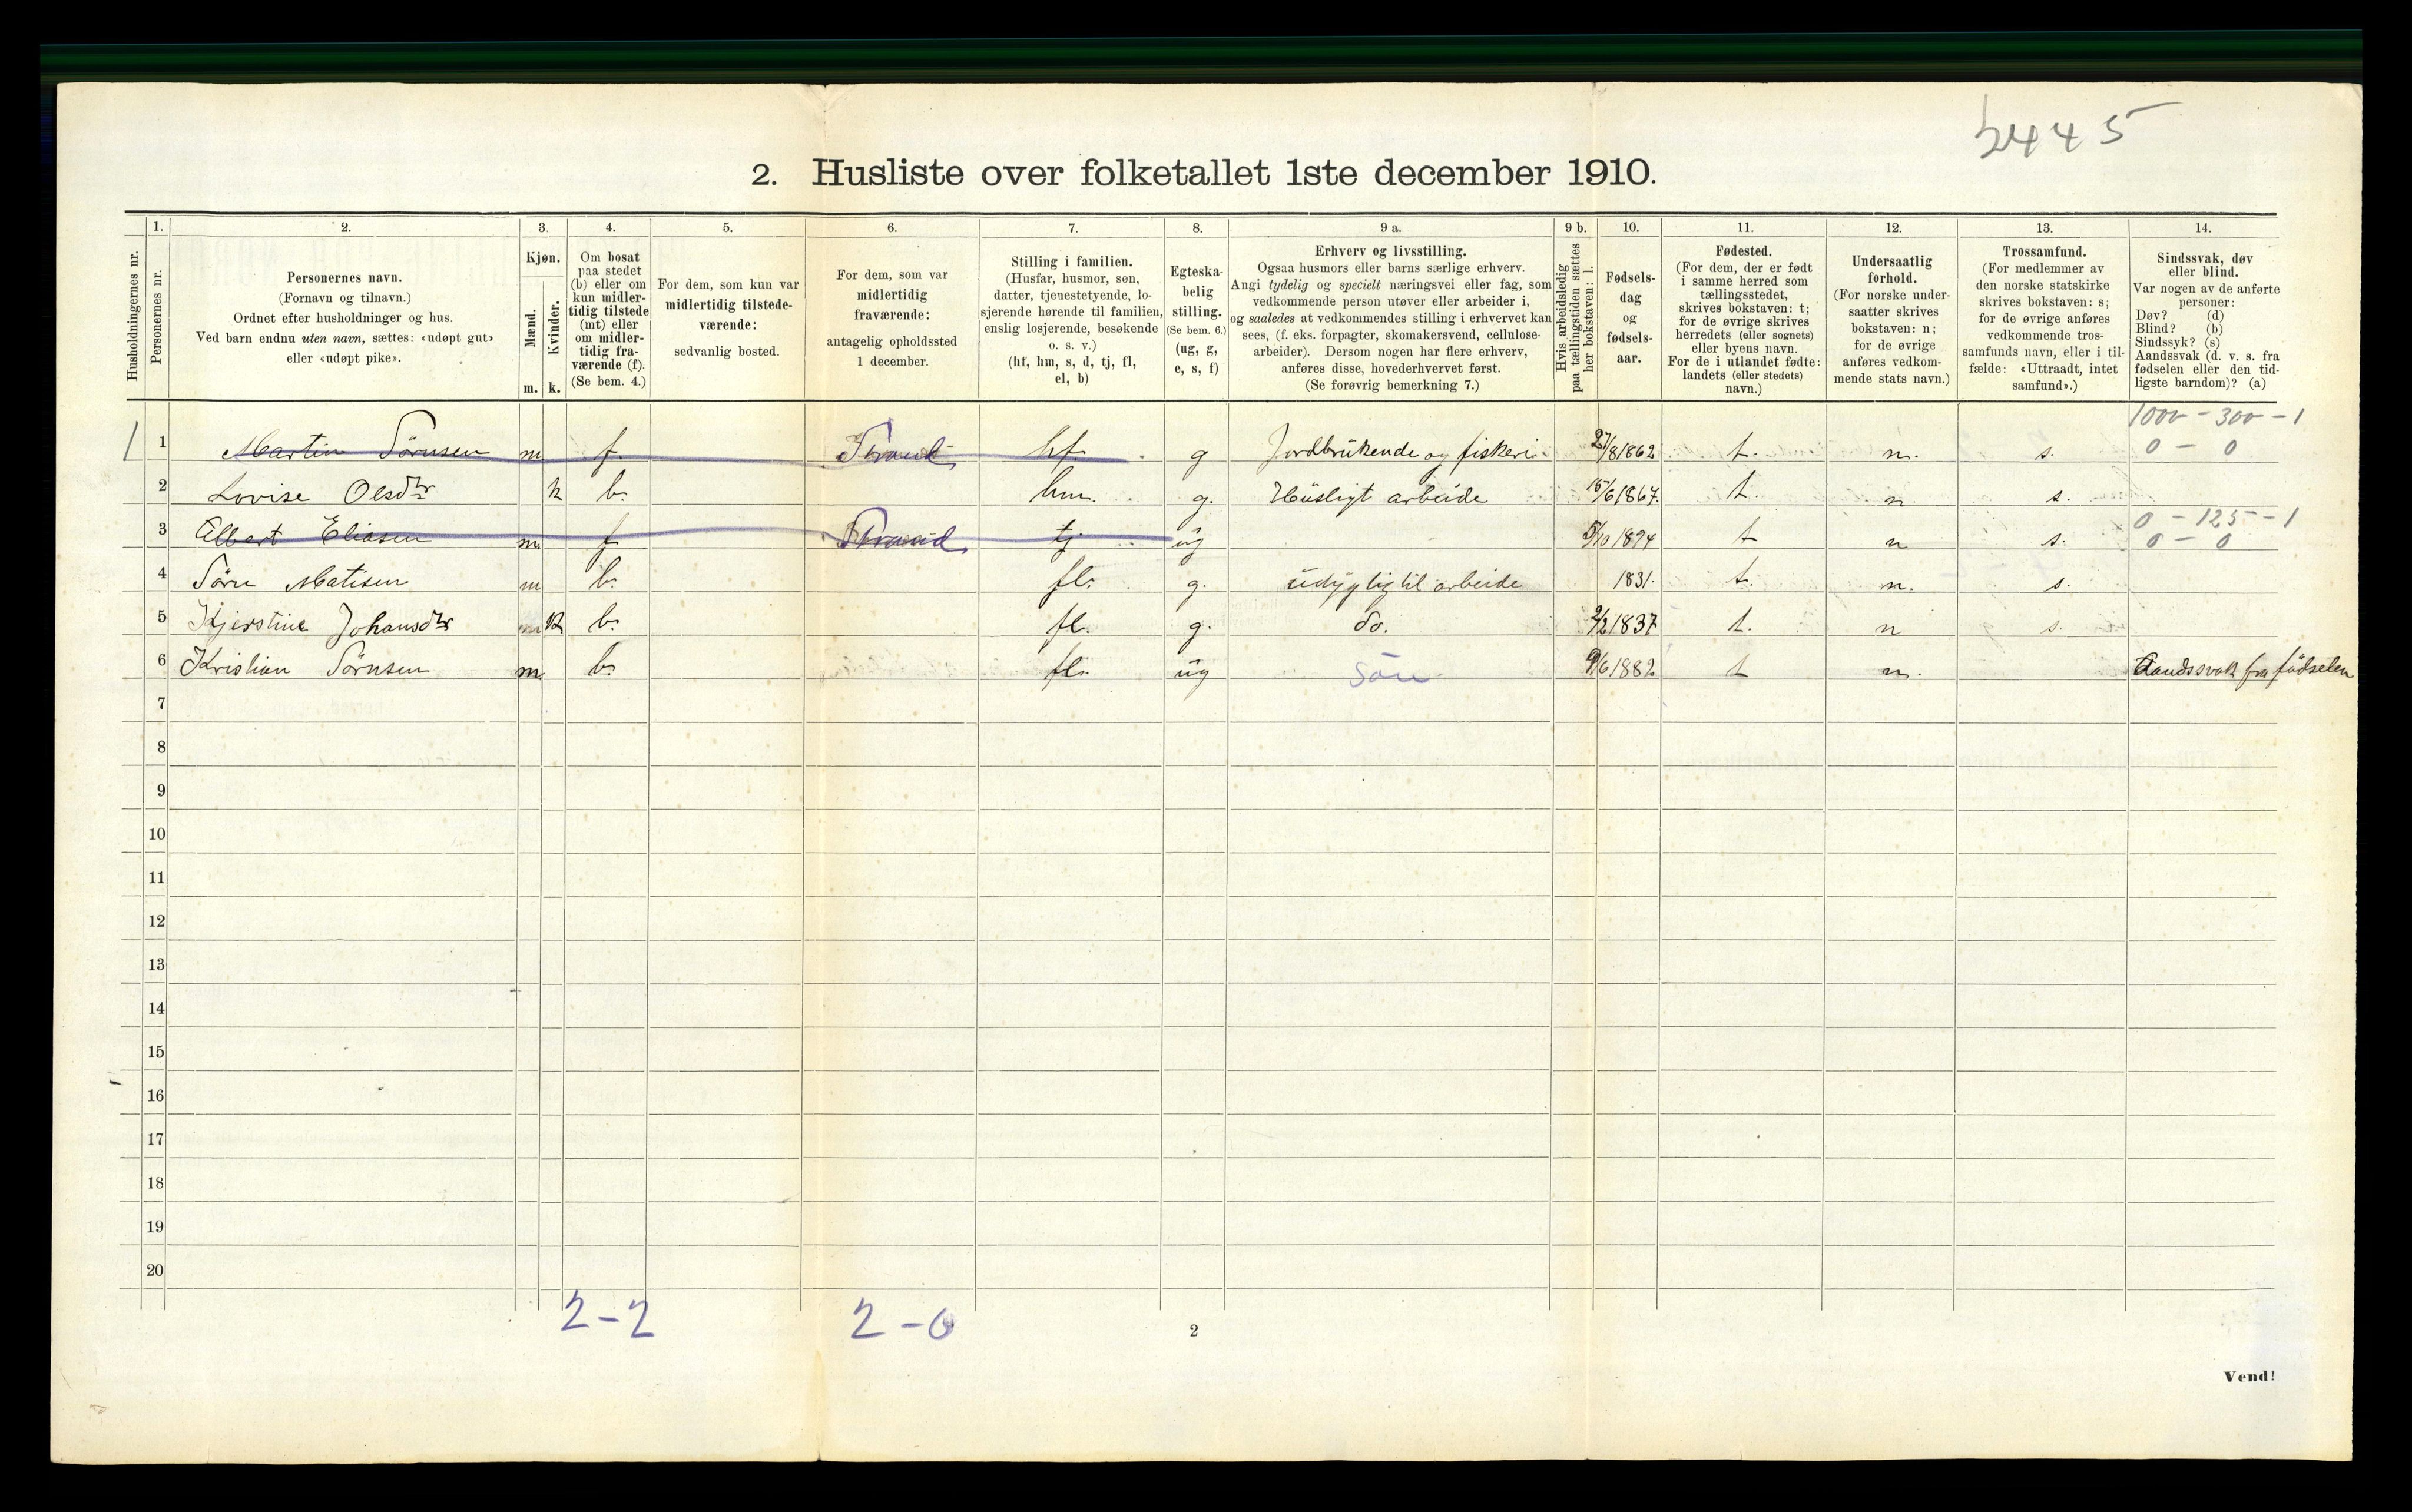 5445
2. Husliste over folketallet 1ste december 1910.
Husholdningernes nr.
1.
Personernes nr.
2.
Personernes navn.
(Fornavn og tilnavn.)
Ordnet efter husholdninger og hus.
Ved barn endnu uten navn, sættes: «udøpt gut»
eller «udøpt pike».
3.
Kjøn.
Mænd.
Kvinder.
m. k.
4.
Om bosat
paa stedet
(b) eller om
kun midler-
tidig tilstede
(mt) eller
om midler-
tidig fra-
værende (f).
(Se bem. 4.)
5.
For dem, som kun var
midlertidig tilstede-
værende:
sedvanlig bosted.
6.
For dem, som var
midlertidig
fraværende:
antagelig opholdssted
1 december.
7.
Stilling i familien.
(Husfar, husmor, søn,
datter, tjenestetyende, lo-
sjerende hørende til familien,
enslig losjerende, besøkende
o. s. v.)
(hf, hm, s, d, tj, fl,
el, b)
8.
Egteska-
belig
stilling.
(Se bem. 6.)
(ug, g,
e, s, f)
9 a.
Erhverv og livsstilling.
Ogsaa husmors eller barns særlige erhverv.
Angi tydelig og specielt næringsvei eller fag, som
vedkommende person utøver eller arbeider i,
og saaledes at vedkommendes stilling i erhvervet kan
sees, (f. eks. forpagter, skomakersvend, cellulose-
arbeider). Dersom nogen har flere erhverv,
anføres disse, hovederhvervet først.
(Se forøvrig bemerkning 7.)
9 b.
Hvis arbeidsledig
paa tællingstiden sættes
her bokstaven: l.
10.
Fødsels-
dag
og
fødsels-
aar.
11.
Fødested.
(For dem, der er født
i samme herred som
tællingsstedet,
skrives bokstaven: t;
for de øvrige skrives
herredets (eller sognets)
eller byens navn.
For de i utlandet fødte:
landets (eller stedets)
navn.)
12.
Undersaatlig
forhold.
(For norske under-
saatter skrives
bokstaven: n;
for de øvrige
anføres vedkom-
mende stats navn.)
13.
Trossamfund.
(For medlemmer av
den norske statskirke
skrives bokstaven: s;
for de øvrige anføres
vedkommende tros-
samfunds navn, eller i til-
fælde: «Uttraadt, intet
samfund».)
14.
Sindssvak, døv
eller blind.
Var nogen av de anførte
personer:
Døv? (d)
Blind? (b)
Sindssyk? (s)
Aandssvak (d. v. s. fra
fødselen eller den tid-
ligste barndom)? (a)
1000 - 300 - 1
1 1 Martin Sörnsen m f Strand hf g Jordbrukende og fiskeri 27/8 1862 t. n. s. 0 - 0
2 Lovise Olsdtr k b. hm. g. Huusligt arbeide 15/6 1867. t. n s.
0 - 125 - 1
3 Albert Eliasen m. f Strand tj ug 5/10 1894 t n s. 0 - 0
4 Sörn Matisen m b. fl. g. udygtig til arbeide 1831. t. n. s.
5 Kjerstine Johansdtr k b. fl. g. do. 9/2 1837 t. n s.
6 Kristian Sörnsen m. b. fl. ug Sön 9/6 1882 t n. Aandssvak fra födselen
7
8
9
10
11
12
13
14
15
16
17
18
19
20
2-2 2-0
2
Vend!